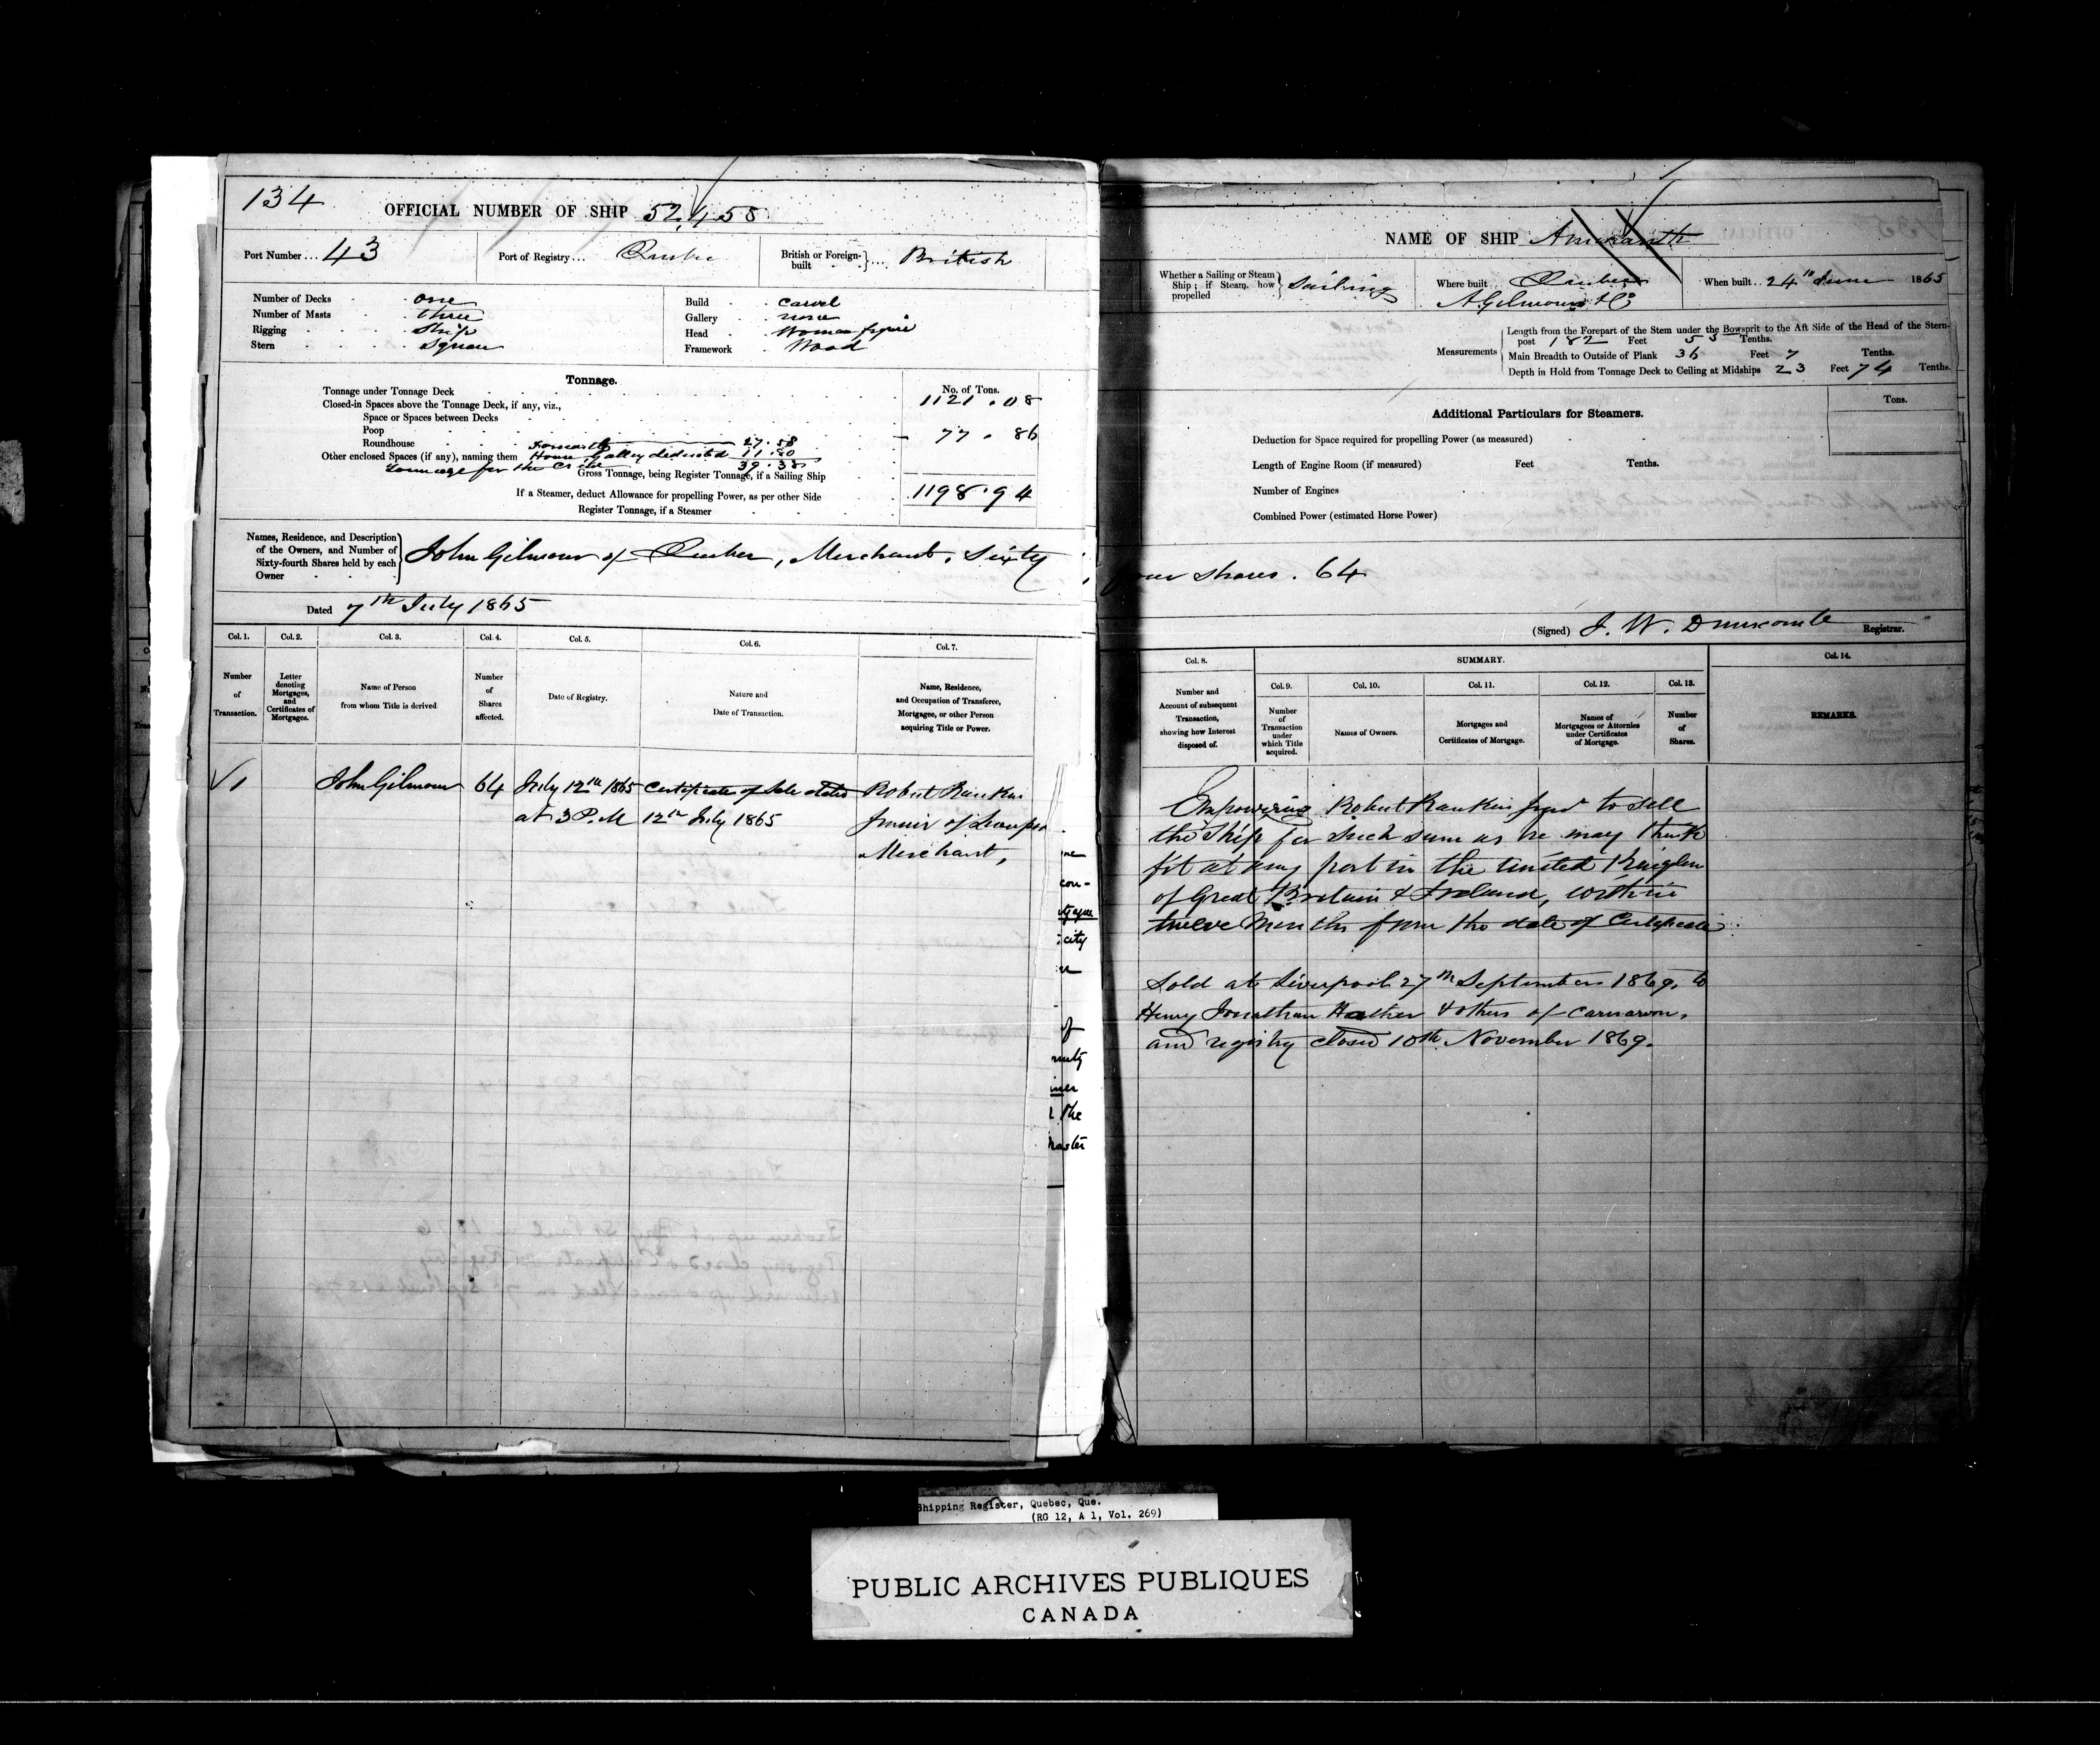 134
OFFICIAL NUMBER OF SHIP 52,458
Port Number... 43
Port of Registry... Quebec
British or Foreign-built ... British
Number of Decks one
Number of Masts three
Rigging Ship
Stern Square
Build Carvel
Gallery none
Head Woman figure
Framework Wood
Tonnage.
No. of Tons.
Tonnage under Tonnage Deck 1121.08
Closed-in Spaces above the Tonnage Deck, if any, viz.,
Space or Spaces between Decks
Poop 77.86
Roundhouse
Forecastle 27.58
Other enclosed Spaces (if any), naming them House Galley deducted 11.80
Tonnage for the Crew 39.38
Gross Tonnage, being Register Tonnage, if a Sailing Ship
If a Steamer, deduct Allowance for propelling Power, as per other Side 1198.94
Register Tonnage, if a Steamer
Names, Residence, and Description
of the Owners, and Number of
Sixty-fourth Shares held by each
Owner
John Gilmour of Quebec, Merchant, Sixty
Dated 7th July 1865
Col. 1. Col. 2. Col. 3. Col. 4. Col. 5. Col. 6. Col. 7.
Number
of
Transaction.
Letter
denoting
Mortgages,
and
Certificates of
Mortgages.
Name of Person
from whom Title is derived
Number
of
Shares
affected.
Date of Registry.
Nature and
Date of Transaction.
Name, Residence,
and Occupation of Transferee,
Mortgagee, or other Person
acquiring Title or Power.
√1 John Gilmour 64 July 12th 1865 Certificate of Sale dated Robert Rankin
at 3 P.M 12th July 1865 Junior of
Merchant,
con-
city
of
the
Master
NAME OF SHIP Amaranth
Whether a Sailing or Steam
Ship; if Steam, how
propelled
Sailing
Where built Quebec
A. Gilmour & Co
When built.. 24th June 1865
Measurements
Length from the Forepart of the Stem under the Bowsprit to the Aft Side of the Head of the Stern-
post 182 Feet 53 Tenths.
Main Breadth to Outside of Plank 36 Feet 7 Tenths.
Depth in Hold from Tonnage Deck to Ceiling at Midships 23 Feet 74 Tenths.
Additional Particulars for Steamers.
Tons.
Deduction for Space required for propelling Power (as measured)
Length of Engine Room (if measured) Feet Tenths.
Number of Engines
Combined Power (estimated Horse Power)
four shares. 64
(Signed) J. W. Dunscomb Registrar.
Col. 8. SUMMARY. Col. 14.
Col. 9. Col. 10. Col. 11. Col. 12. Col. 13.
Number and
Account of subsequent
Transaction,
showing how Interest
disposed of.
Number
of
Transaction
under
which Title
acquired.
Names of Owners.
Mortgages and
Certificates of Mortgage.
Names of
Mortgagees or Attornies
under Certificates
of Mortgage.
Number
of
Shares.
REMARKS.
Empowering Robert Rankin Junr to sell
the Ship for such sum as he may think
fit at any port in the United Kingdom
of Great Britain & Ireland, within
twelve Months from the date of Certificate
Sold at Liverpool 27th September 1869, to
Henry Jonathan & others of Carnarvon,
and registry closed 10th November 1869.
Shipping Register, Quebec, Que.
(RG 12, A 1, Vol. 269)
PUBLIC ARCHIVES PUBLIQUES
CANADA